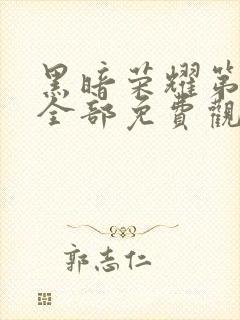 黑暗荣耀第
全部免費觀
郭志仁